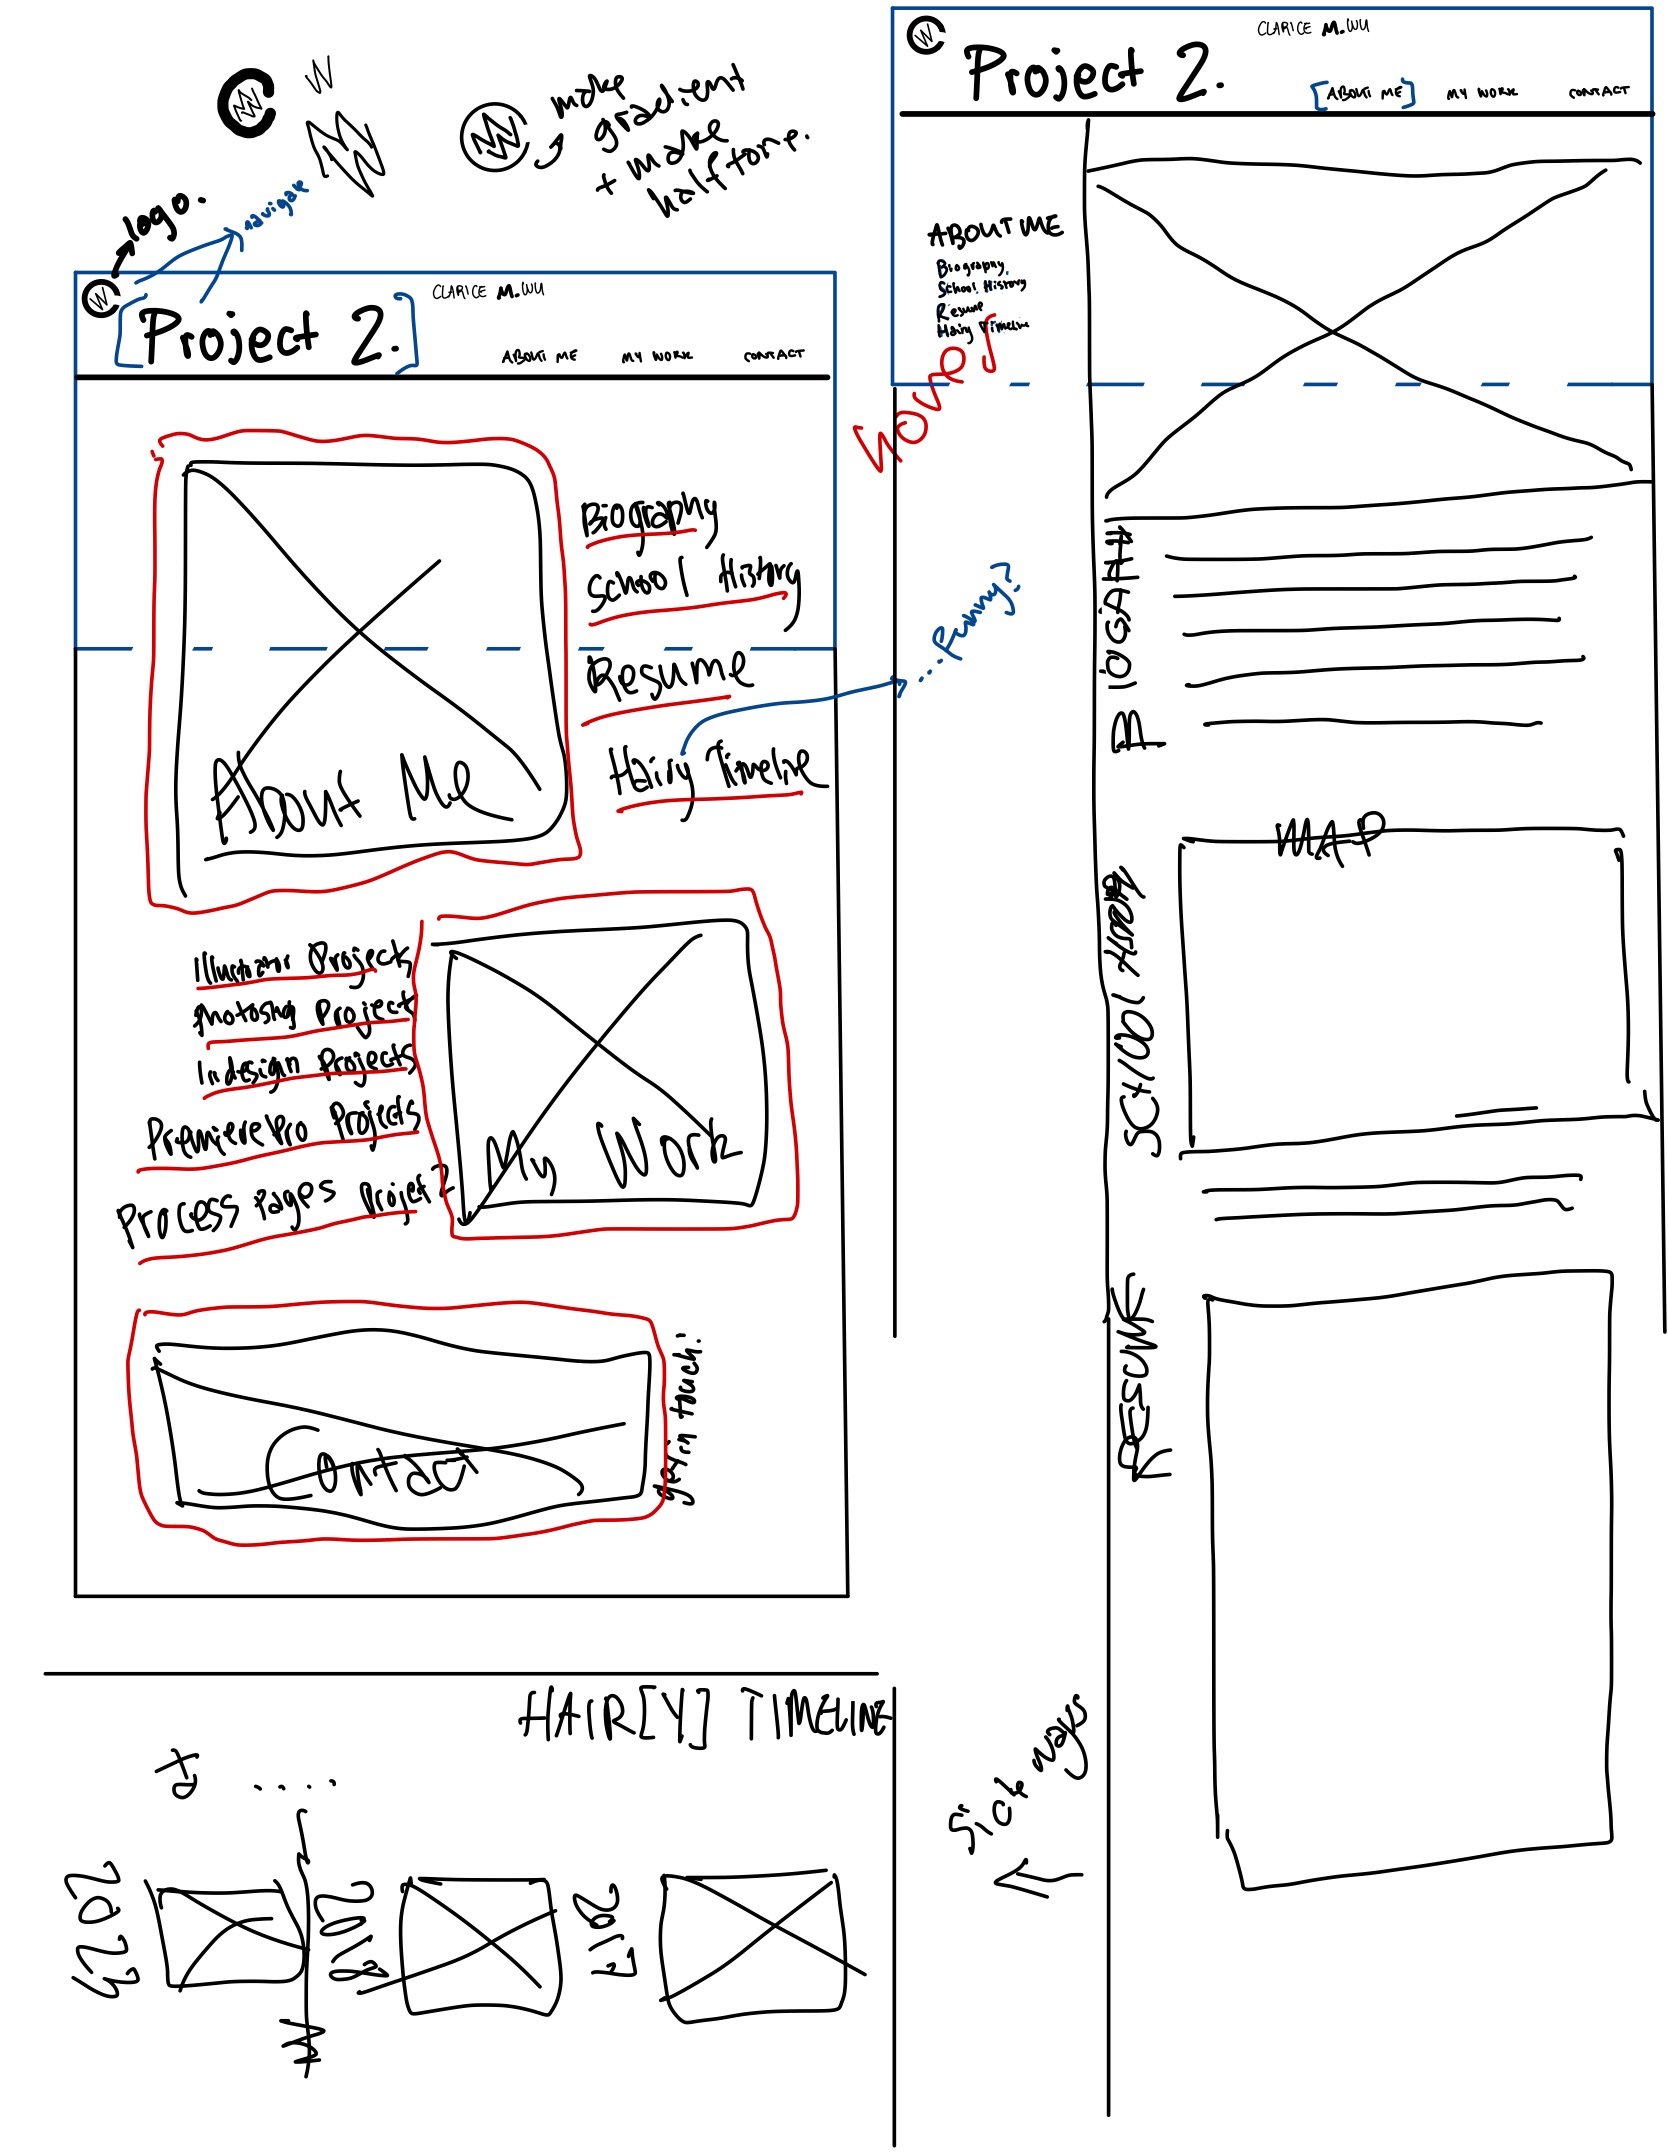 W
make
gradient
+ make
halftone.
logo.
navigate
Project 2.
CLARICE M. WU
ABOUT ME
MY WORK
CONTACT
About Me
Biography
School History
Resume
Hairy Timeline
...funny?
Illustrator Projects
Indesign Projects
Premiere Pro Projects
Process Pages Project 2
My Work
Contact
get in touch!
Project 2.
CLARICE M. WU
[ABOUT ME]
MY WORK
CONTACT
ABOUT ME
Biography
School History
Resume
Hairy Timeline
hover
MAP
SCHOOL
RESUME
HAIR[Y] TIMELINE
....
2023
2018
2017
Side ways